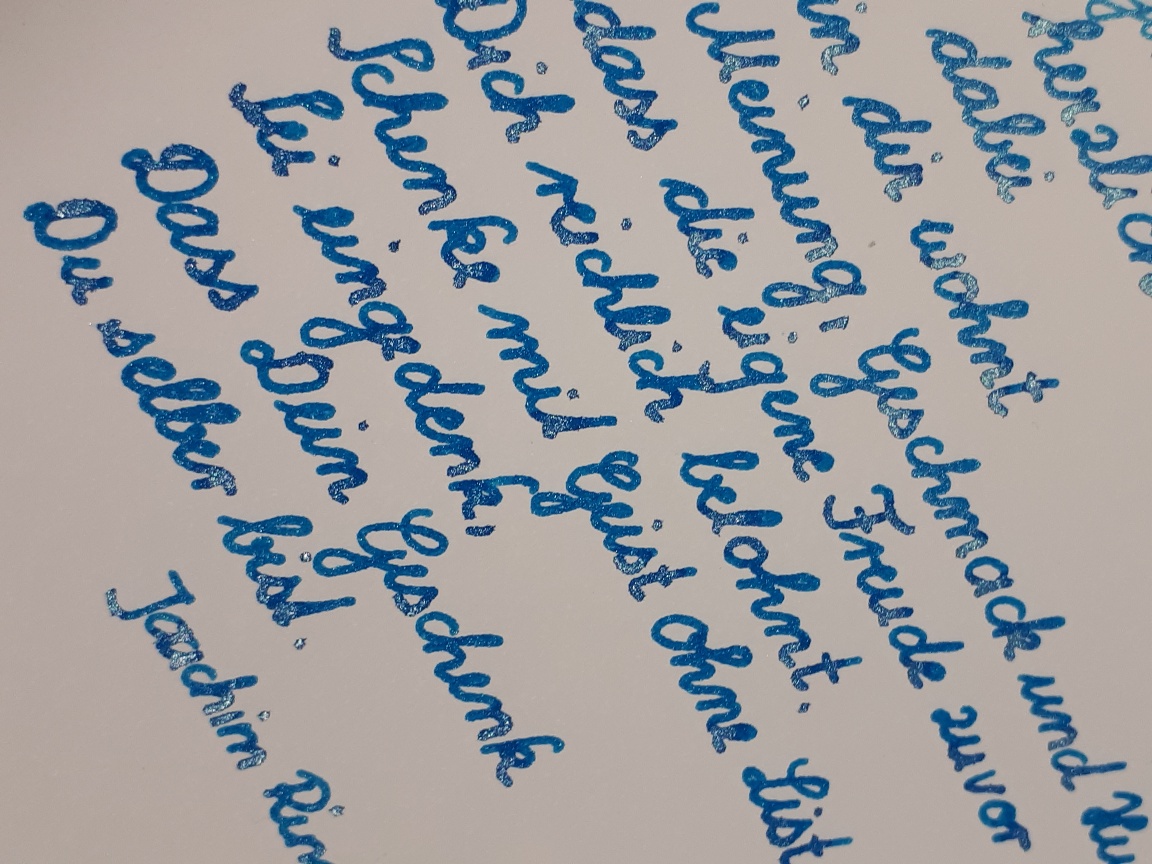 herzlich
dabei
in dir wohnt
Meinung, Geschmack und Hu
dass die eigene Freude zuvor
Dich reichlich belohnt.
Schenke mit Geist ohne List
Sei eingedenk,
Dass Dein Geschenk
Du selber bist.
Joachim Rin